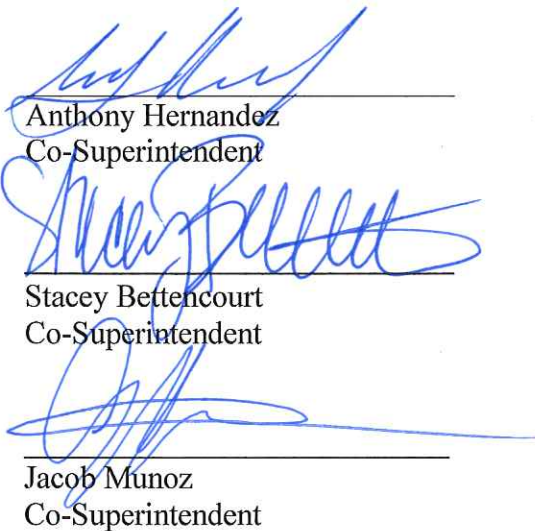 Anthony Hernandez
Co-Superintendent
Stacey Bettencourt
Stacey Bettencourt
Co-Superintendent
Jacob Munoz
Co-Superintendent